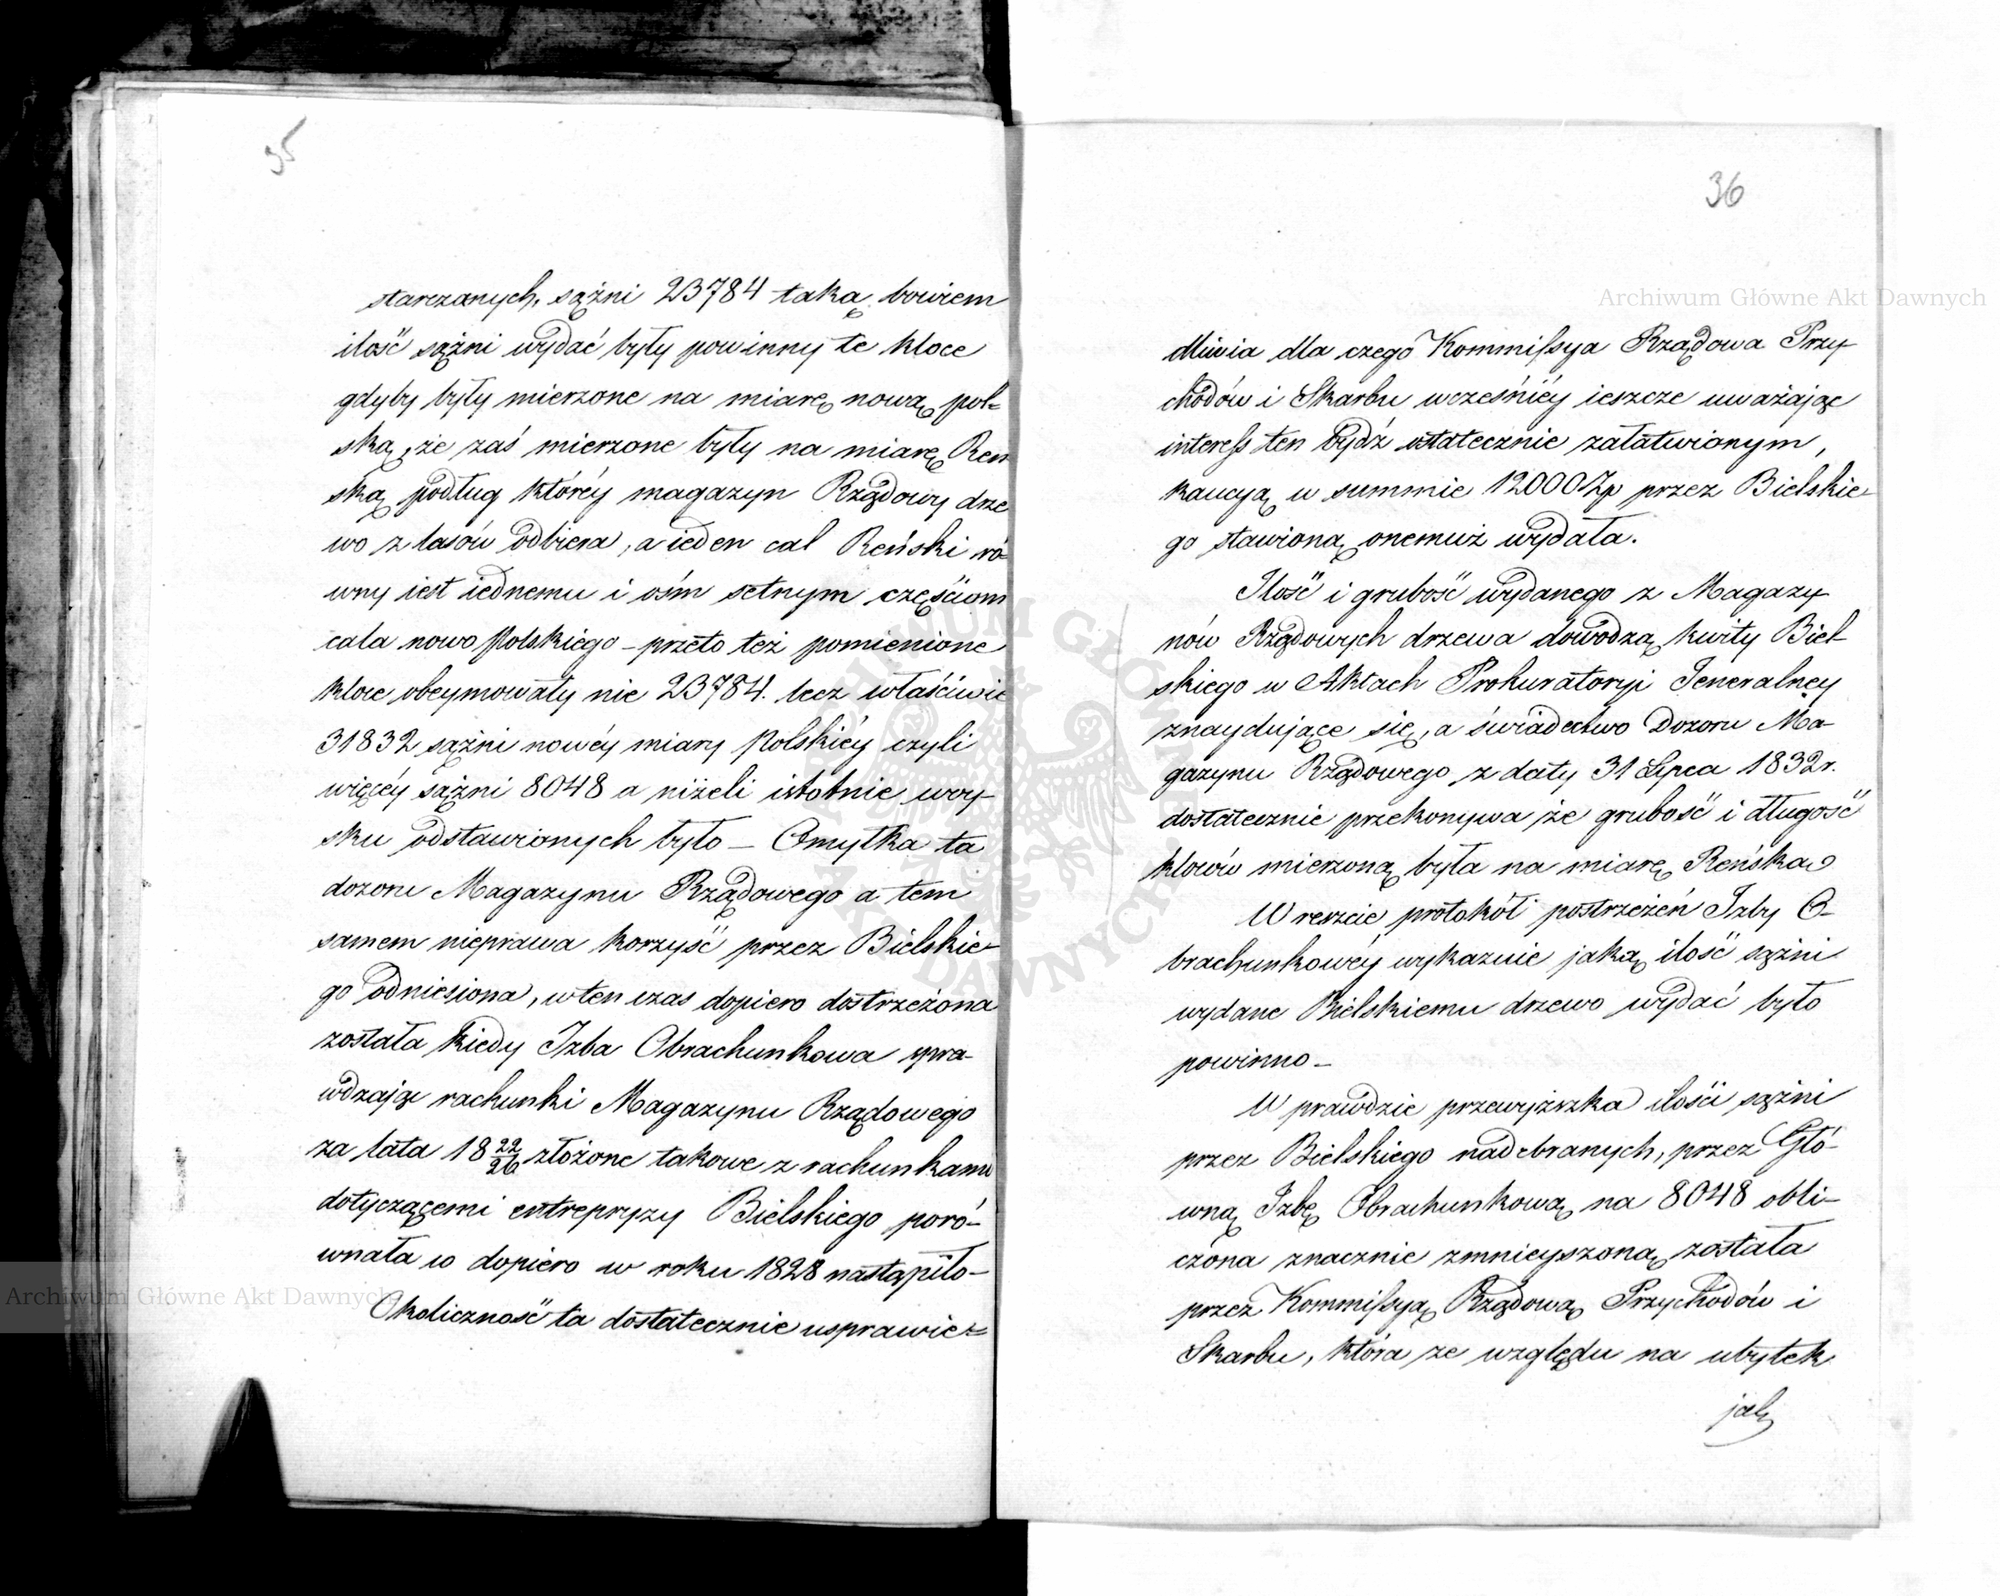 35
starczanych, sążni 23784 taką bowiem
ilość sążni wydać były powinny te kloce
gdyby były mierzone na miarę nową pol-
ską, że zaś mierzone były na miarę Ren
ską podług któréy magazyn Rządowy drze
wo z lasów odbiera, a ieden cal Reński ró
wny iest iednemu i ośm setnym częściom
cala nowo polskiego – przeto też pomienione
kloce obeymowały nie 23784. lecz właściwie
31832 sążni nowéy miary polskiéy czyli
więcéy sążni 8048 a niżeli istotnie woy-
sku odstawionych było – Omyłka ta
dozoru Magazynu Rządowego a tem
samem nieprawa korzyść przez Bielskie-
go odniesiona, wten czas dopiero dostrzeżona
została kiedy Izba Obrachunkowa spra-
wdzając rachunki Magazynu Rządowego
za lata 18 22/26 złożone takowe z rachunkami
dotyczącemi entrepryzy Bielskiego poró-
wnała co dopiero w roku 1828 nastąpiło –
Okoliczność ta dostatecznie usprawie-
36
dliwia dla czego Kommissya Rządowa Przy
chodów i Skarbu wcześniéy ieszcze uważając
interess ten bydź ostatecznie załatwionym,
kaucyą w summie 12000 Zp przez Bielskie-
go stawioną onemuż wydała.
Ilość i grubość wydanego z Magazy
nów Rządowych drzewa dowodzą kwity Biel-
skiego w Aktach Prokuratoryi Jeneralney
znaydujące się, a świadectwo Dozoru Ma-
gazynu Rządowego z daty 31 Lipca 1832 r.
dostatecznie przekonywa że grubość i długość
kloców mierzoną była na miarę Reńską
W reszcie protokół postrzeżeń Izby O-
brachunkowéy wykazuie jaką ilość sążni
wydane Bielskiemu drzewo wydać było
powinno –
W prawdzie przewyższka ilości sążni
przez Bielskiego nadebranych, przez Głó-
wną Izbę Obrachunkową na 8048 obli-
czona znacznie zmnieyszoną została
przez Kommissyą Rządową Przychodów i
Skarbu, która ze względu na ubytek
Archiwum Główne Akt Dawnych
Archiwum Główne Akt Dawnych
ARCHIWUM GŁÓWNE AKT DAWNYCH